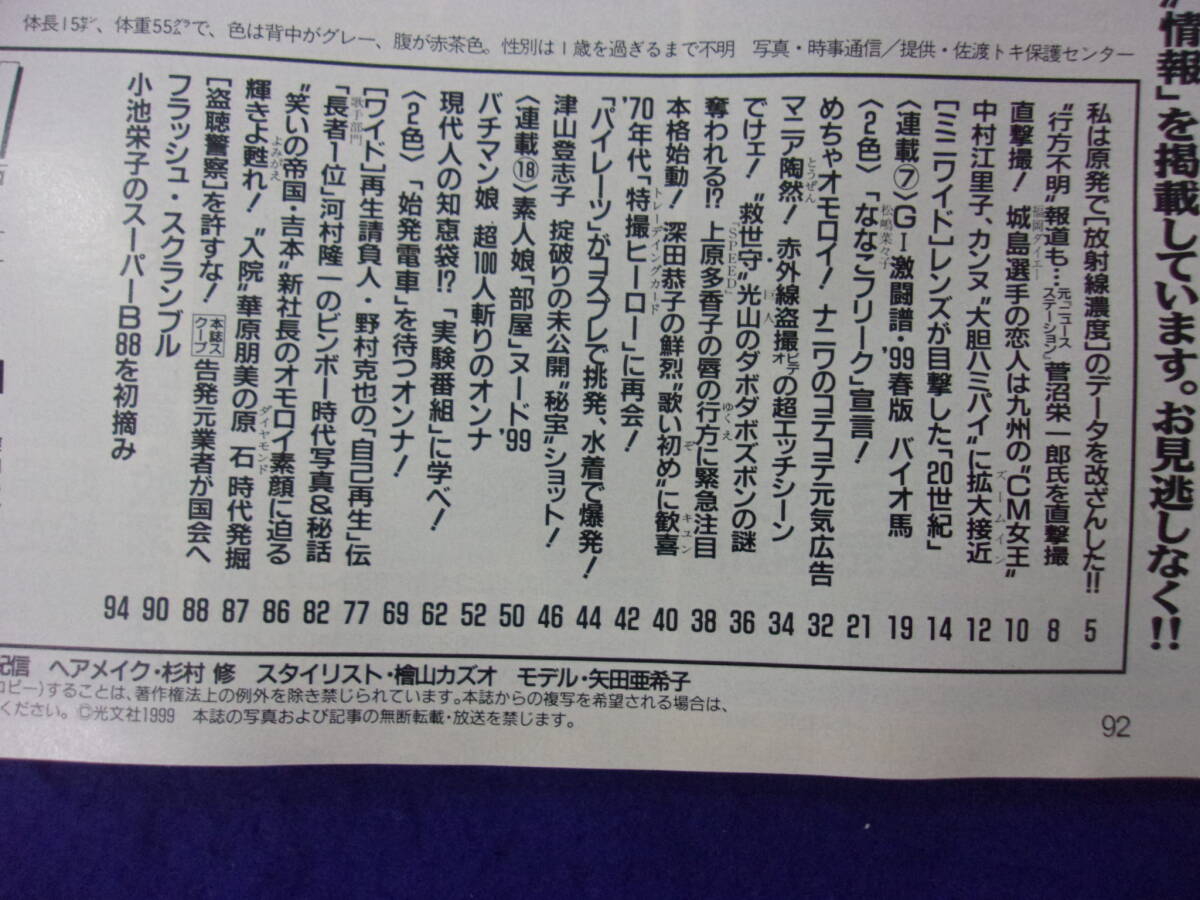 体長15㌢、体重55㌘で、色は背中がグレー、腹が赤茶色。性別は1歳を過ぎるまで不明 写真・時事通信/提供・佐渡トキ保護センター
情報」を掲載しています。お見逃しなく!!
私は原発で[放射線濃度]のデータを改ざんした!! 5
"行方不明"報道も…元『ニュースステーション』菅沼栄一郎氏を直撃撮 8
直撃撮! 福岡ダイエー 城島選手の恋人は九州の"CM女王" 10
中村江里子、カンヌ"大胆ハミパイ"に拡大接近 ズームイン 12
[ミニワイド]レンズが目撃した「20世紀」 14
〈連載⑦〉G-激闘譜・'99春版 バイオ馬 19
〈2色〉「ななこフリーク」宣言! 松嶋菜々子 21
めちゃオモロイ! ナニワのコテコテ元気広告 32
マニア陶然! とうぜん 赤外線盗撮ビデオの超エッチシーン 34
でけェ! "救世守"光山のダボダボズボンの謎 巨人 36
奪われる!? 「SPEED」上原多香子の唇の行方に緊急注目 ゆくえ 38
本格始動! 深田恭子の鮮烈"歌い初め"に歓喜 ぞ キユン 40
'70年代「特撮ヒーロー」に再会! トレーディングカード 42
「パイレーツ」がコスプレで挑発、水着で爆発! 44
津山登志子 掟破りの未公開"秘宝"ショット! 46
〈連載⑱〉素人娘「部屋」ヌード'99 50
バチマン娘 超100人斬りのオンナ 52
現代人の知恵袋!? 「実験番組」に学べ! 62
〈2色〉「始発電車」を待つオンナ! 69
[ワイド]再生請負人・野村克也の「自己再生」伝 77
「長者1位」河村隆一のビンボー時代写真&秘話 歌手部門 82
"笑いの帝国・吉本"新社長のオモロイ素顔に迫る 86
輝きよ甦れ! よみがえ "入院"華原朋美の原石時代発掘 ダイヤモンド 87
[盗聴警察]を許すな! 本誌スクープ 告発元業者が国会へ 88
フラッシュ・スクランブル 90
小池栄子のスーパーB88を初摘み 94
配信 ヘアメイク・杉村 修 スタイリスト・檜山カズオ モデル・矢田亜希子
コピー)することは、著作権法上の例外を除き禁じられています。本誌からの複写を希望される場合は、
ください。©光文社1999 本誌の写真および記事の無断転載・放送を禁じます。
92